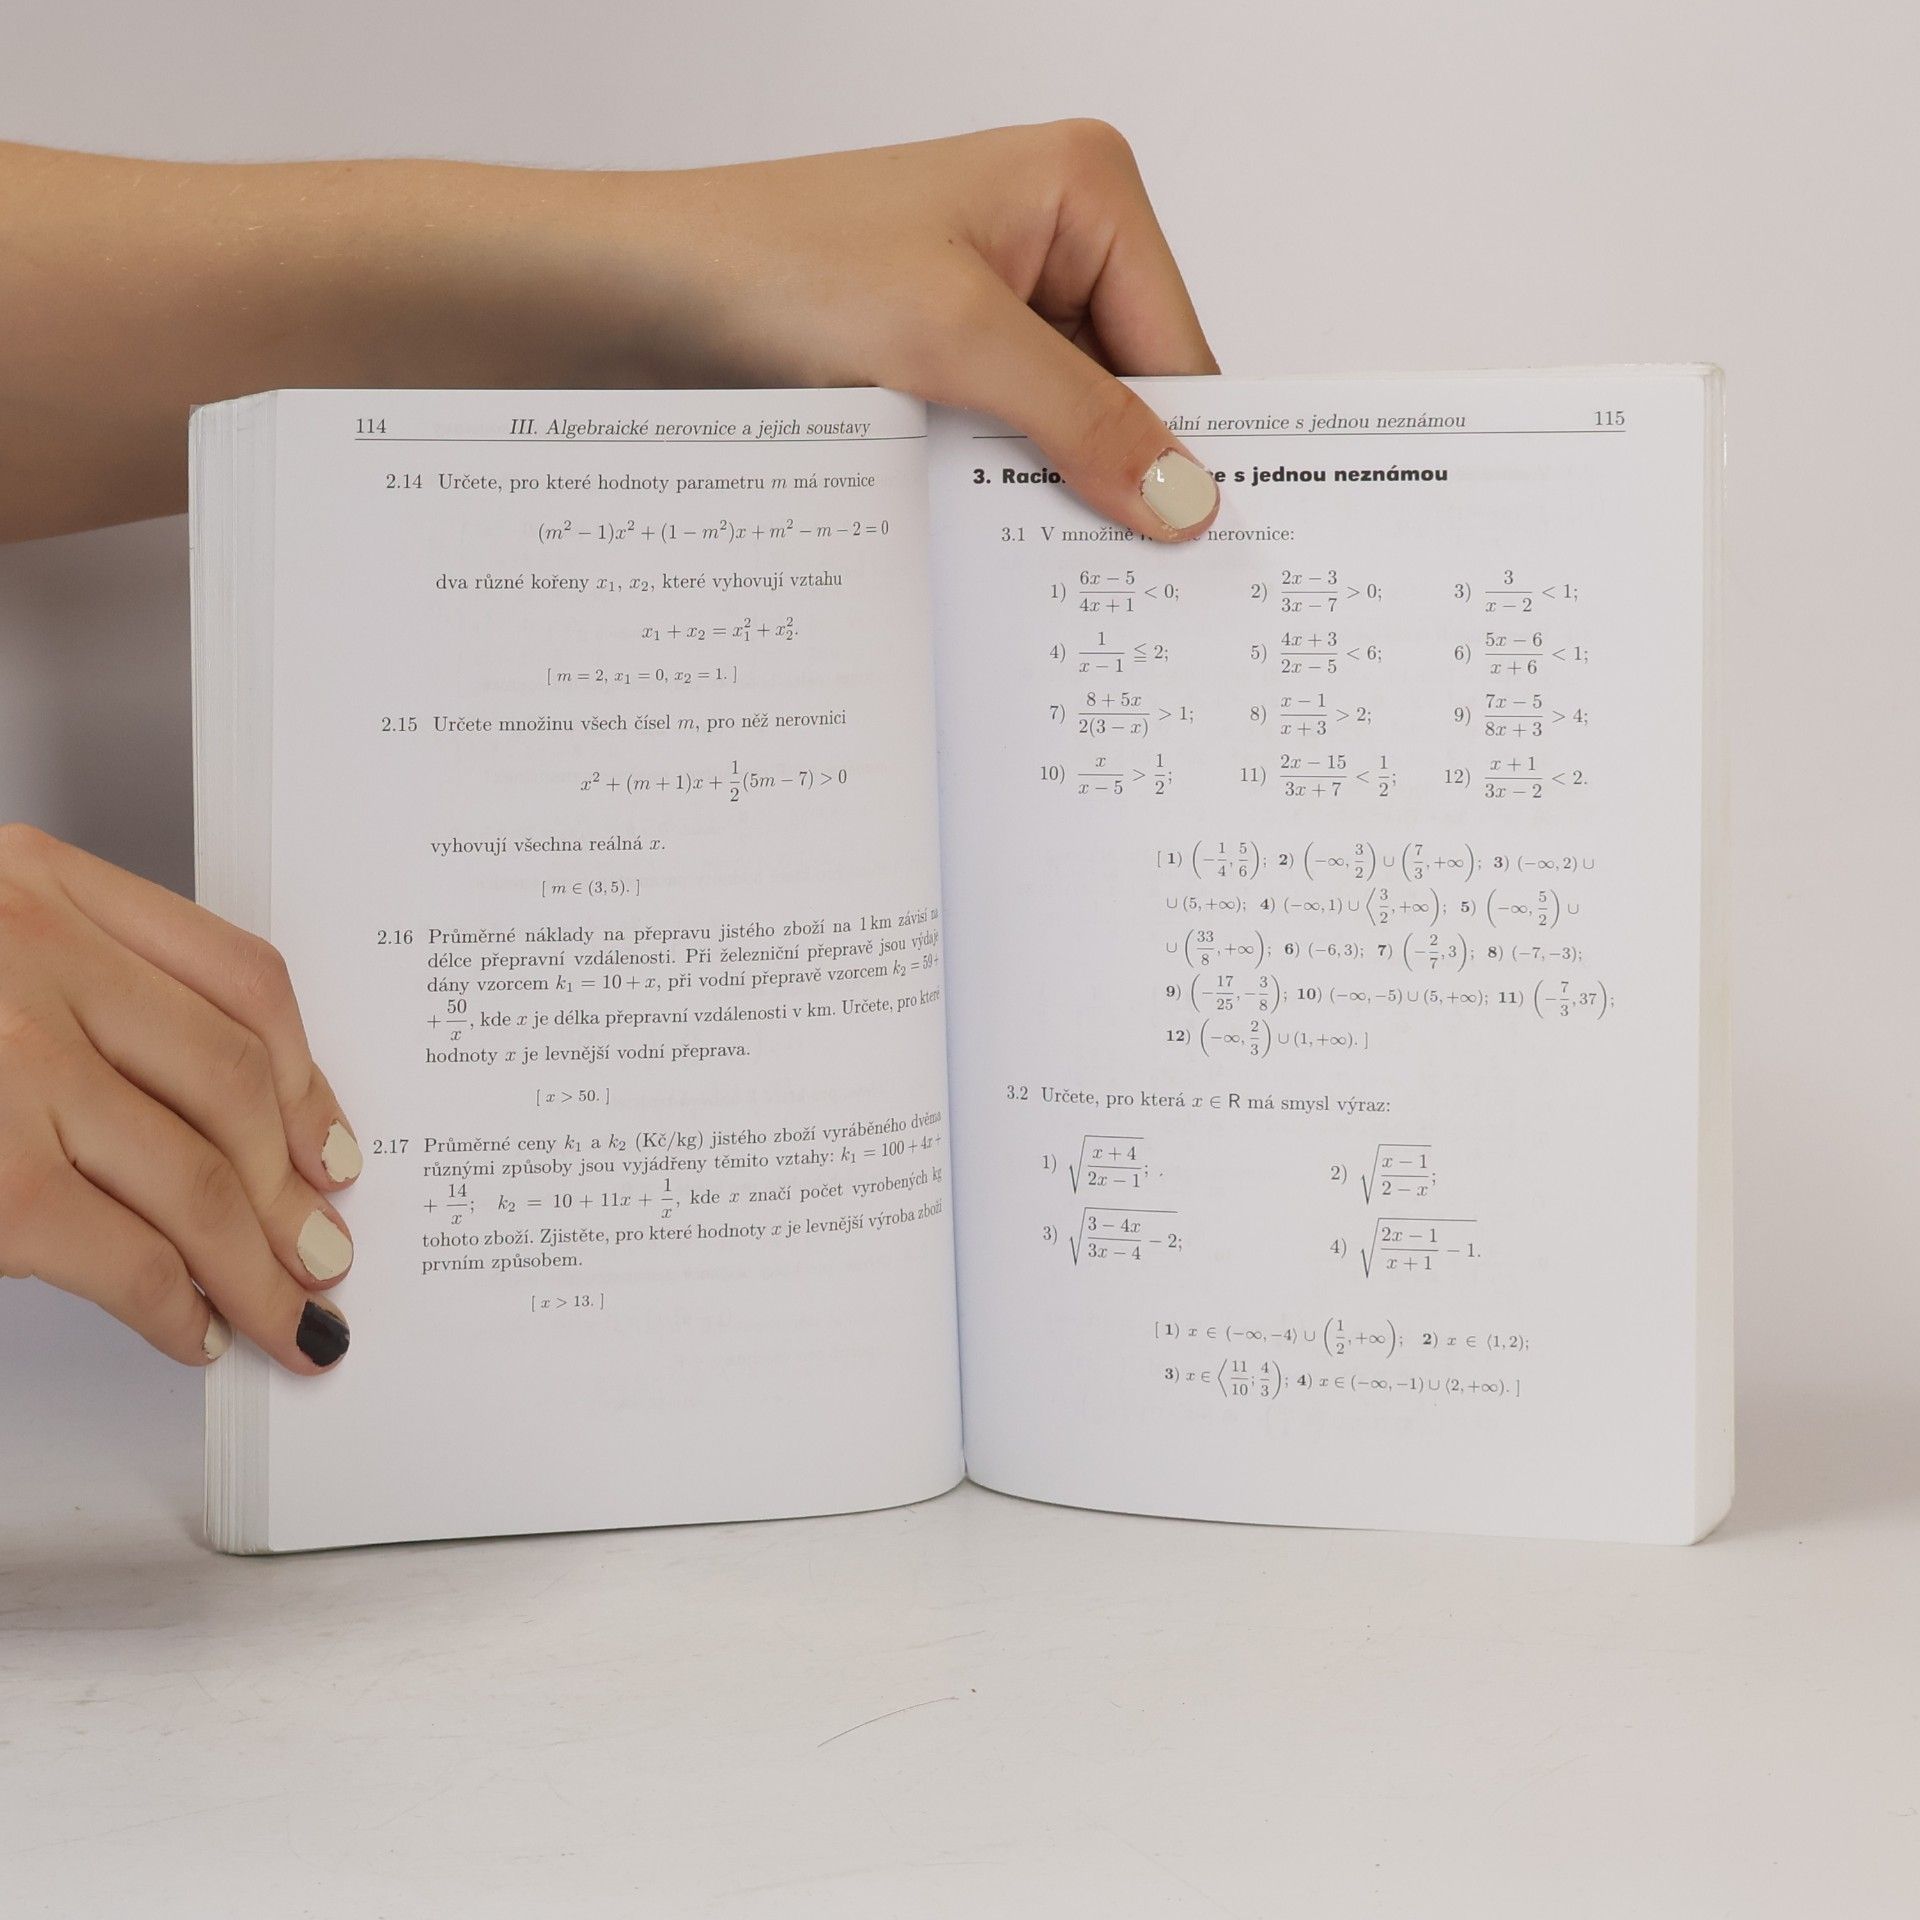 114 III. Algebraické nerovnice a jejich soustavy
2.14 Určete, pro které hodnoty parametru m má rovnice
(m² − 1)x² + (1 − m²)x + m² − m − 2 = 0
dva různé kořeny x₁, x₂, které vyhovují vztahu
x₁ + x₂ = x₁² + x₂².
[ m = 2, x₁ = 0, x₂ = 1. ]
2.15 Určete množinu všech čísel m, pro něž nerovnici
x² + (m + 1)x + 1/2(5m − 7) > 0
vyhovují všechna reálná x.
[ m ∈ (3, 5). ]
2.16 Průměrné náklady na přepravu jistého zboží na 1 km závisí na
délce přepravní vzdálenosti. Při železniční přepravě jsou výdaje
dány vzorcem k₁ = 10 + x, při vodní přepravě vzorcem k₂ = 59 +
+ 50/x, kde x je délka přepravní vzdálenosti v km. Určete, pro které
hodnoty x je levnější vodní přeprava.
[ x > 50. ]
2.17 Průměrné ceny k₁ a k₂ (Kč/kg) jistého zboží vyráběného dvěma
různými způsoby jsou vyjádřeny těmito vztahy: k₁ = 100 + 4x +
+ 14/x; k₂ = 10 + 11x + 1/x, kde x značí počet vyrobených kg
tohoto zboží. Zjistěte, pro které hodnoty x je levnější výroba zboží
prvním způsobem.
[ x > 13. ]
nerovnice s jednou neznámou 115
3. s jednou neznámou
3.1 V množině nerovnice:
1) (6x − 5)/(4x + 1) < 0; 2) (2x − 3)/(3x − 7) > 0; 3) 3/(x − 2) < 1;
4) 1/(x − 1) ≦ 2; 5) (4x + 3)/(2x − 5) < 6; 6) (5x − 6)/(x + 6) < 1;
7) (8 + 5x)/(2(3 − x)) > 1; 8) (x − 1)/(x + 3) > 2; 9) (7x − 5)/(8x + 3) > 4;
10) x/(x − 5) > 1/2; 11) (2x − 15)/(3x + 7) < 1/2; 12) (x + 1)/(3x − 2) < 2.
[ 1) (−1/4, 5/6); 2) (−∞, 3/2) ∪ (7/3, +∞); 3) (−∞, 2) ∪
∪ (5, +∞); 4) (−∞, 1) ∪ ⟨3/2, +∞); 5) (−∞, 5/2) ∪
∪ (33/8, +∞); 6) (−6, 3); 7) (−2/7, 3); 8) (−7, −3);
9) (−17/25, −3/8); 10) (−∞, −5) ∪ (5, +∞); 11) (−7/3, 37);
12) (−∞, 2/3) ∪ (1, +∞). ]
3.2 Určete, pro která x ∈ R má smysl výraz:
1) √((x + 4)/(2x − 1)); 2) √((x − 1)/(2 − x));
3) √((3 − 4x)/(3x − 4) − 2); 4) √((2x − 1)/(x + 1) − 1).
[ 1) x ∈ (−∞, −4⟩ ∪ (1/2, +∞); 2) x ∈ ⟨1, 2);
3) x ∈ ⟨11/10; 4/3); 4) x ∈ (−∞, −1) ∪ ⟨2, +∞). ]